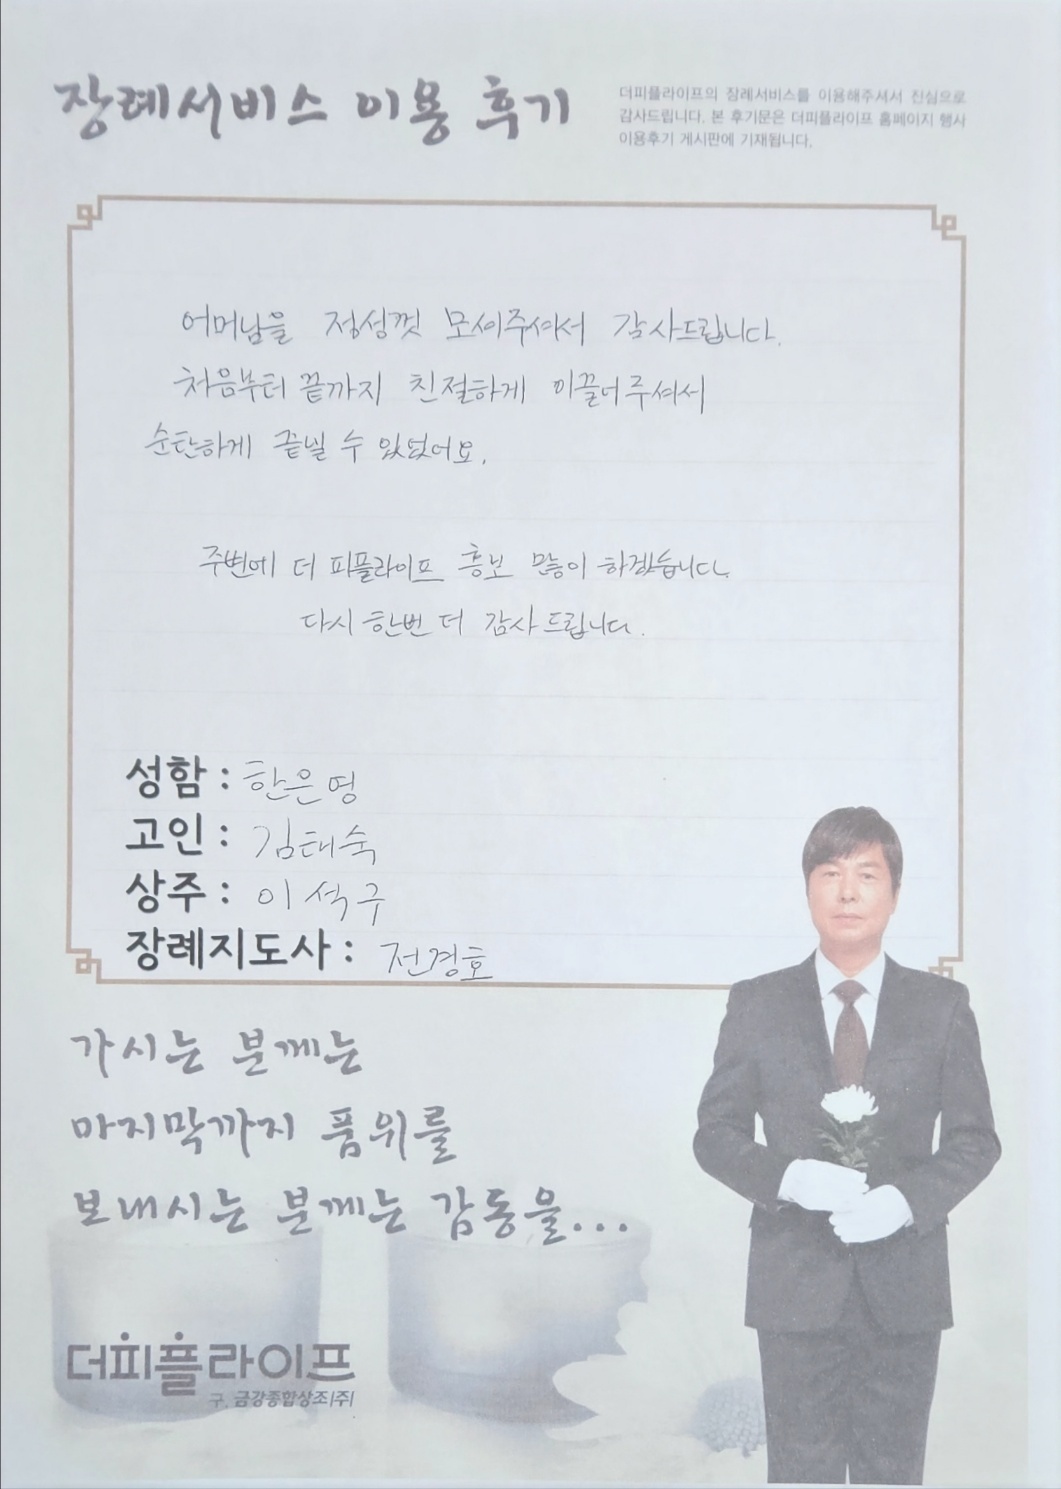 장례서비스 이용 후기
더피플라이프의 장례서비스를 이용해주셔서 진심으로
감사드립니다. 본 후기문은 더피플라이프 홈페이지 행사
이용후기 게시판에 기재됩니다.
어머님을 정성껏 모셔주셔서 감사드립니다.
처음부터 끝까지 친절하게 이끌어주셔서
순탄하게 끝낼 수 있었어요.
주변에 더 피플라이프 홍보 많이 하겠습니다.
다시 한번 더 감사드립니다.
성함 : 한은영
고인 : 김태숙
상주 : 이석구
장례지도사 : 전경호
가시는 분께는
마지막까지 품위를
보내시는 분께는 감동을...
더피플라이프
구. 금강종합상조(주)